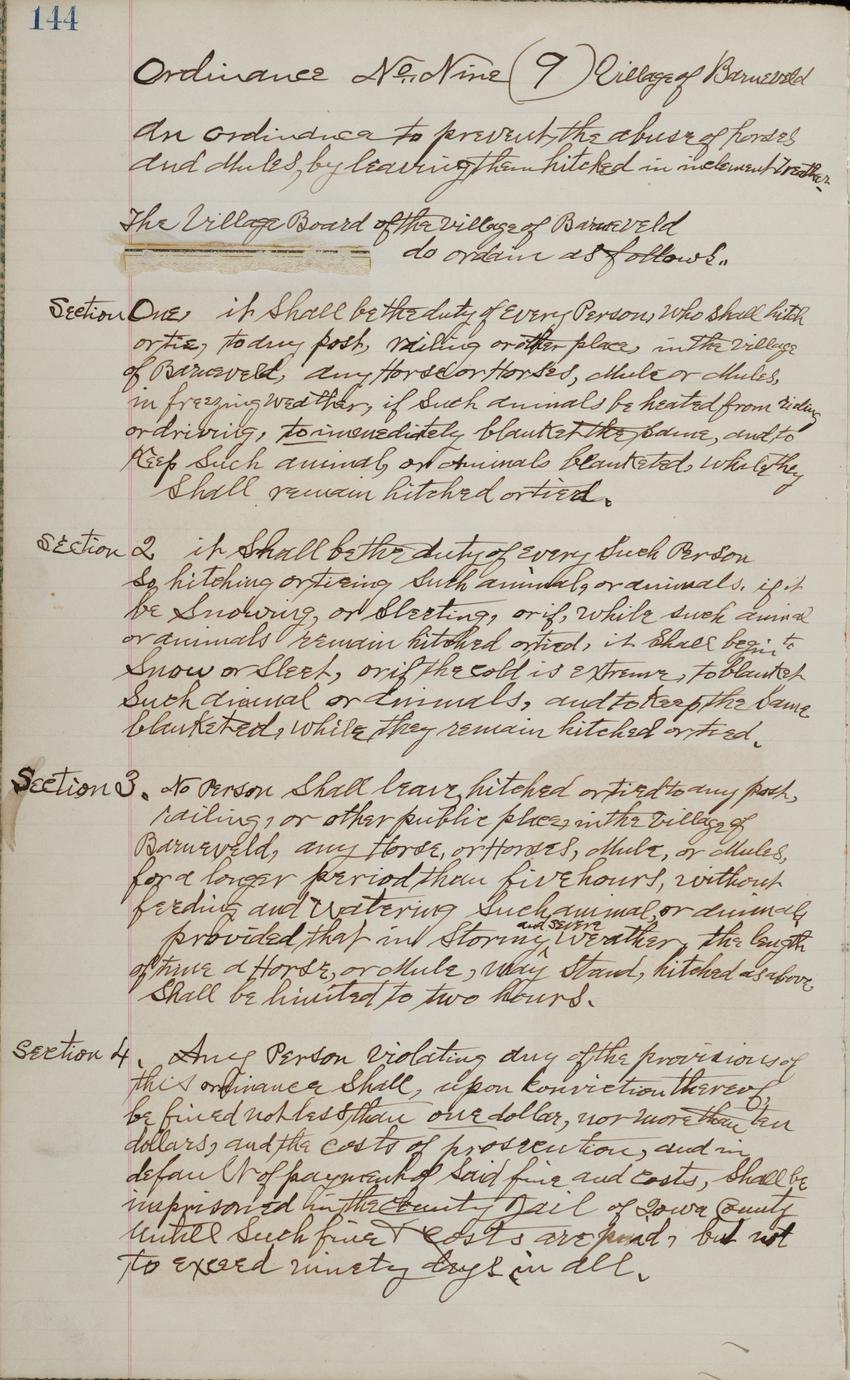 144
Ordinance No. Nine (9) Village of Barneveld
An ordinance to prevent the abuse of horses
and Mules, by leaving them hitched in inclement Weather.
The Village Board of the Village of Barneveld
do ordain as follows..
Section One, it Shall be the duty of Every Person, Who shall hitch
or tie, to any post, railing or other place, in the Village
of Barneveld, any Horse or Horses, Mule or Mules,
in freezing Weather, if Such animals be heated from riding
or driving, to immediately blanket the Same, and to
Keep Such animal, or animals blanketed, while they
Shall remain hitched or tied.
Section 2 it Shall be the duty of every Such Person
So, hitching or tieing Such animal, or animals. if it
be Snowing, or Sleeting, or if, while such animal
or animals remain hitched or tied, it Shall begin to
Snow or Sleet, or if the cold is extreme, to blanket
Such animal or animals, and to Keep the Same
blanketed, while they remain hitched or tied.
Section 3. No Person Shall leave, hitched or tied to any post,
railing, or other public place, in the Village of
Barneveld, any Horse, or Horses, Mule, or Mules,
for a longer period than five hours, without
feeding and Watering Such animal, or animals,
and severe
provided that in Stormy Weather, the length
of time a Horse, or Mule, may Stand, hitched as above
Shall be limited to two hours.
Section 4. Any Person Violating any of the provisions of
this ordinance Shall, upon Conviction thereof,
be fined not less than one dollar, nor more than ten
dollars, and the costs of prosecution, and in
default of payment of Said fine and costs, Shall be
imprisoned in the County Jail of Iowa County
Untill Such fine & Costs are paid, but not
to exceed ninety days in all.